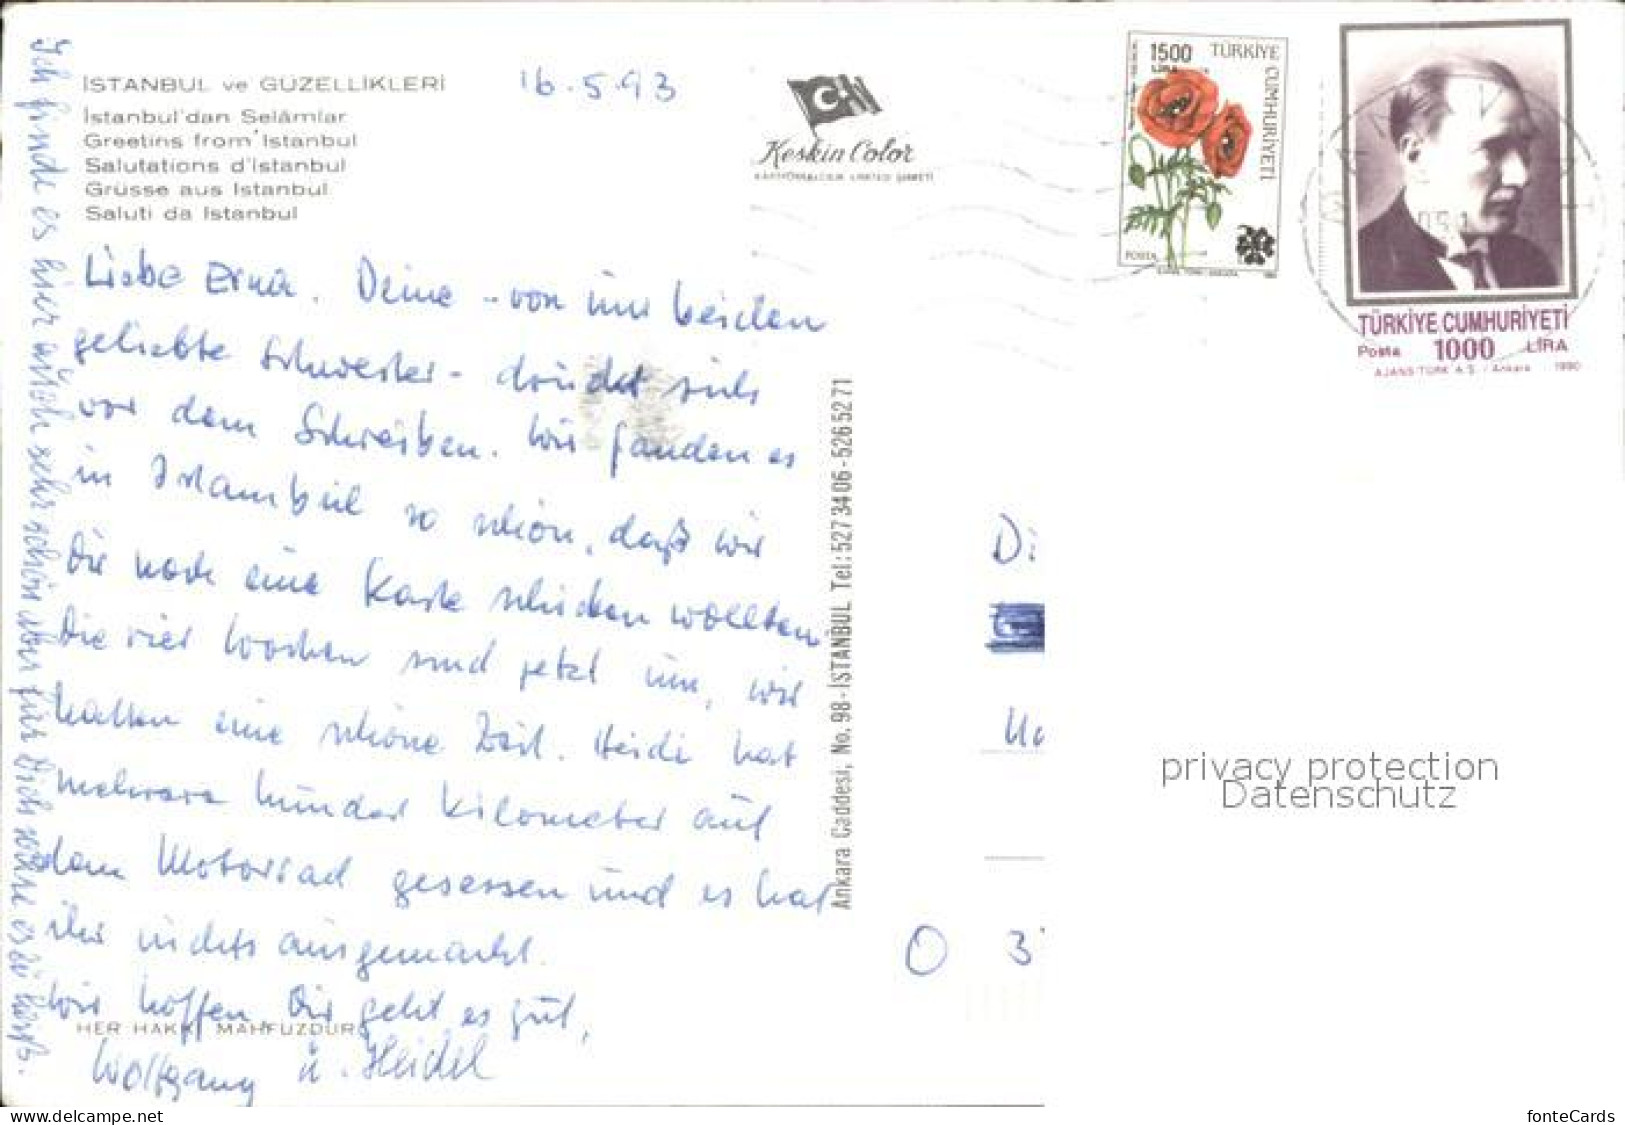 İSTANBUL ve GÜZELLİKLERİ
İstanbul'dan Selâmlar
Greetins from Istanbul
Salutations d'Istanbul
Grüsse aus Istanbul
Saluti da Istanbul
16.5.93
Liebe Erna. Deine - von uns beiden
geliebte Schwester - drückt sich
vor dem Schreiben. Wir fanden es
in Istambul so schön, daß wir
Dir noch eine Karte schicken wollten.
Die vier Wochen sind jetzt um, wir
hatten eine schöne Zeit. Heidi hat
mehrere hundert Kilometer auf
dem Motorrad gesessen und es hat
ihr nichts ausgemacht.
Wir hoffen, Dir geht es gut,
Wolfgang u. Heidel
Ich finde es hier auch sehr schön aber für Dich wäre es zu heiß.
HER HAKKI MAHFUZDUR
Keskin Color
KARTPOSTALCILIK LİMİTED ŞİRKETİ
Ankara Caddesi, No. 98-İSTANBUL Tel: 527 34 06 - 526 52 71
1500
LİRA
TÜRKİYE
CUMHURİYETİ
POSTA
TÜRKİYE CUMHURİYETİ
Posta 1000 LİRA
AJANS-TÜRK A.Ş. - Ankara 1990
Di
O 3
privacy protection
Datenschutz
fonteCards